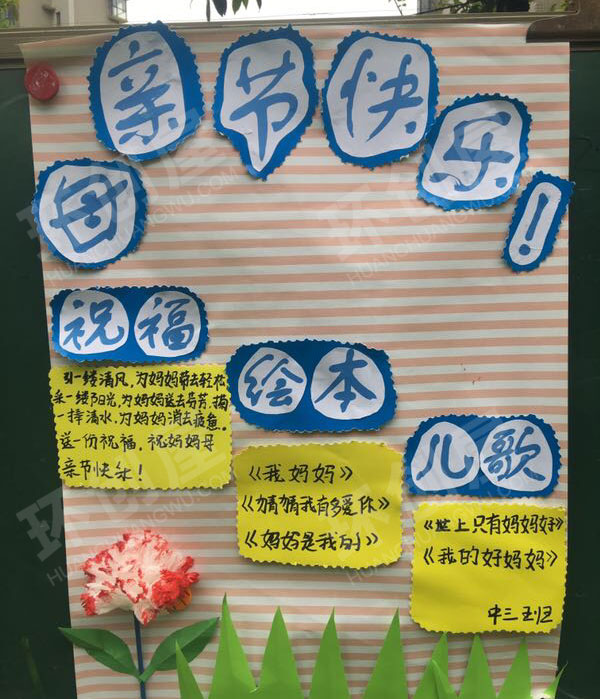 母亲节快乐!
祝福
引一缕清风,为妈妈带去轻松
采一缕阳光,为妈妈送去芬芳,掬
一捧清水,为妈妈消去疲惫。
送一份祝福,祝妈妈母
亲节快乐!
绘本
《我妈妈》
《猜猜我有多爱你》
《妈妈是我的》
儿歌
《世上只有妈妈好》
《我的好妈妈》
中三班
环创屋
HUANCHUANGWU.COM